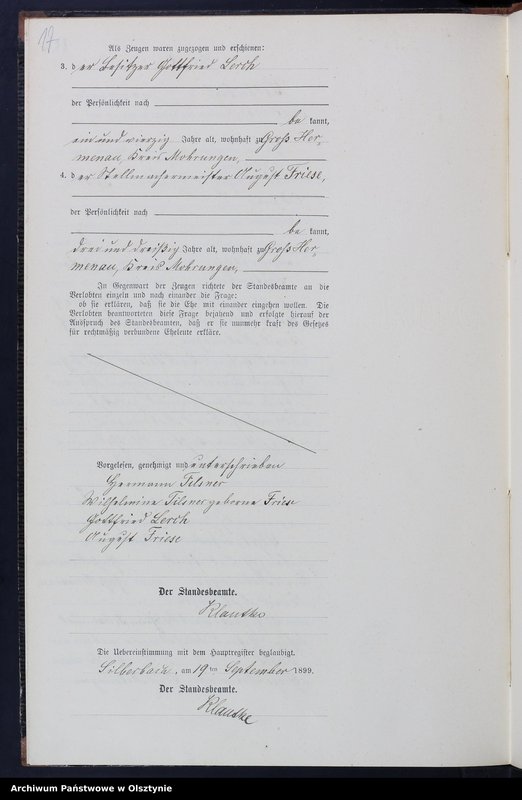 17
Als Zeugen waren zugezogen und erschienen:
3. der Besitzer Gottfried Lerch
der Persönlichkeit nach
be kannt,
einundvierzig Jahre alt, wohnhaft zu Groß Her-
menau, Kreis Mohrungen,
4. der Stellmachermeister August Friese,
der Persönlichkeit nach
be kannt,
drei und dreißig Jahre alt, wohnhaft zu Groß Her-
menau, Kreis Mohrungen,
In Gegenwart der Zeugen richtete der Standesbeamte an die
Verlobten einzeln und nach einander die Frage:
ob sie erklären, daß sie die Ehe mit einander eingehen wollen. Die
Verlobten beantworteten diese Frage bejahend und erfolgte hierauf der
Ausspruch des Standesbeamten, daß er sie nunmehr kraft des Gesetzes
für rechtmäßig verbundene Eheleute erkläre.
Vorgelesen, genehmigt und unterschrieben
Hermann Tilsner
Wilhelmine Tilsner geborne Friese
Gottfried Lerch
August Friese
Der Standesbeamte.
Klautke
Die Uebereinstimmung mit dem Hauptregister beglaubigt.
Silberbach, am 19ten September 1899.
Der Standesbeamte.
Klautke
Archiwum Państwowe w Olsztynie